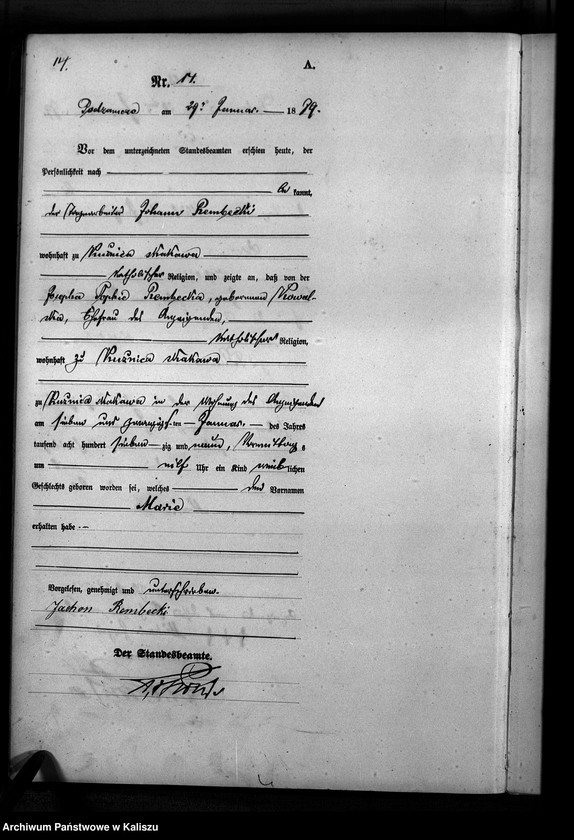 14.
A.
Nr. 14.
Podzamcze am 29. Januar 1879.
Vor dem unterzeichneten Standesbeamten erschien heute, der
Persönlichkeit nach
bekannt,
der Johann Rembecki
wohnhaft zu Kuznica
katholischer Religion, und zeigte an, daß von der
Josepha Rembecka, geborenen Kowal-
ska, Ehefrau des Anzeigenden,
katholischer Religion,
wohnhaft zu Kuznica
zu Kuznica in der Wohnung des Anzeigenden
am sieben und zwanzigsten Januar des Jahres
tausend acht hundert siebenzig und neun, Vormittags
um elf Uhr ein Kind weiblichen
Geschlechts geboren worden sei, welches den Vornamen
Marie
erhalten habe.
Vorgelesen, genehmigt und unterschrieben.
Rembecki
Der Standesbeamte.
Archiwum Państwowe w Kaliszu